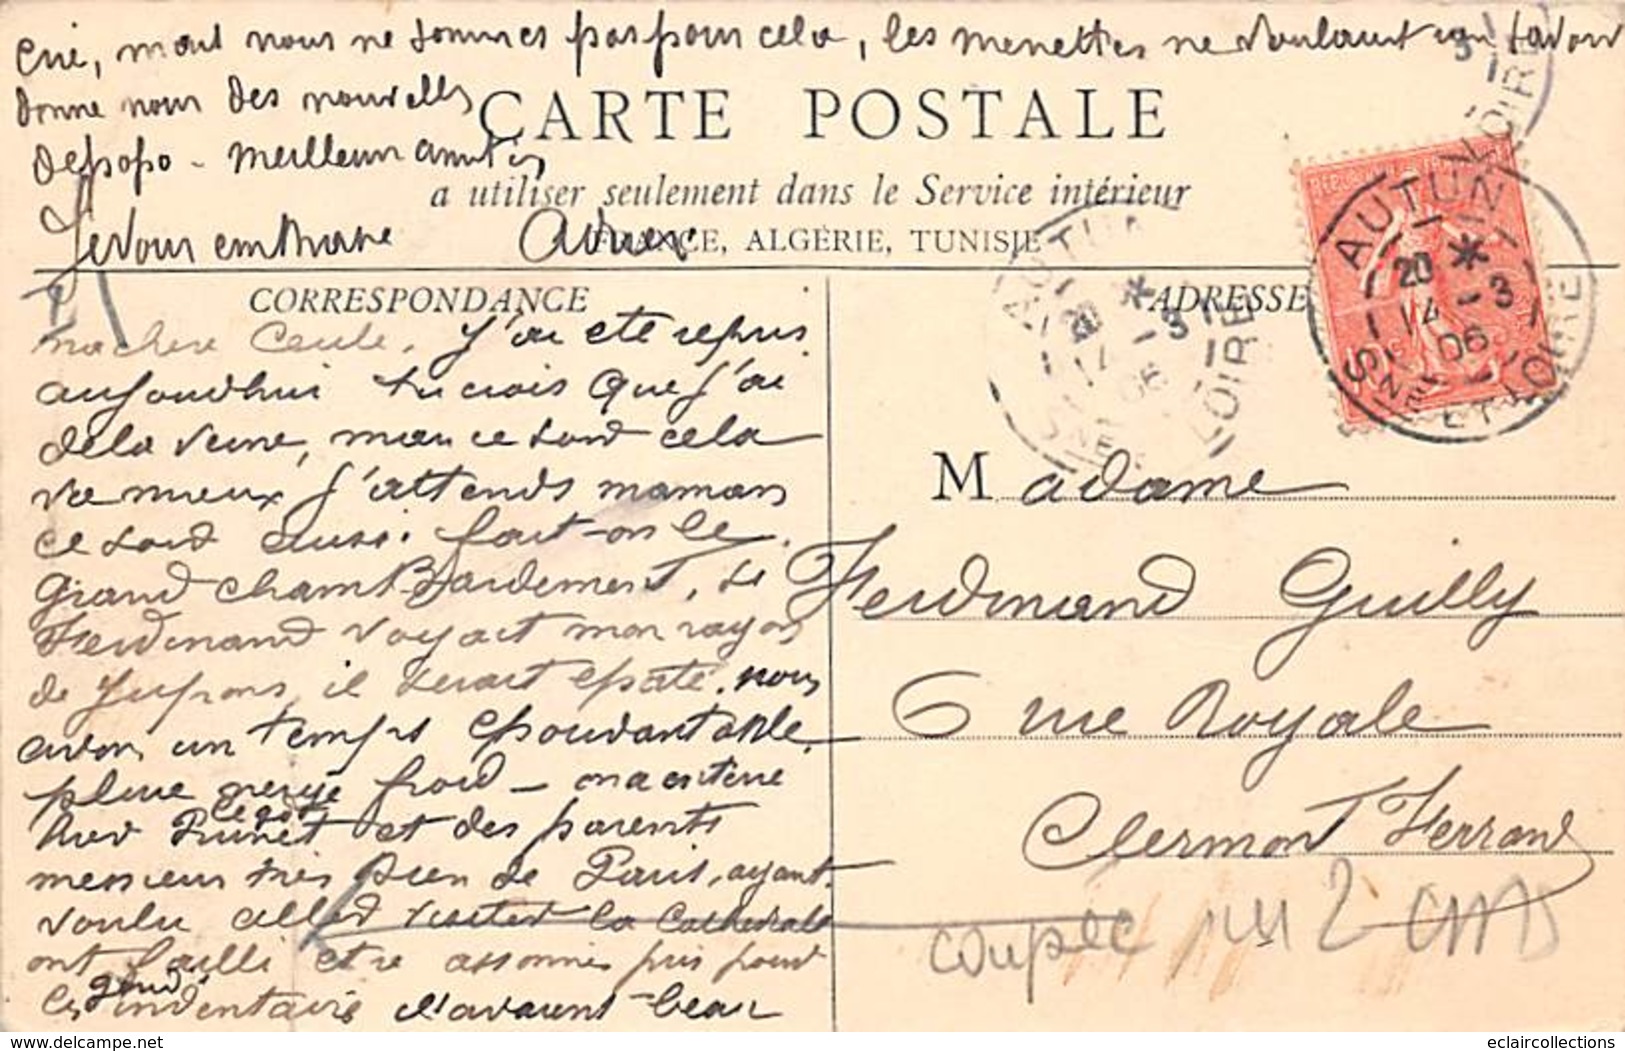 crie, mais nous ne sommes pas pour cela, les menettes ne voulaient rien savoir
donne nous des nouvelles
de popo - meilleur amitiés
CARTE POSTALE
a utiliser seulement dans le Service intérieur
Je vous embrasse
FRANCE, ALGÉRIE, TUNISIE
CORRESPONDANCE
ADRESSE
AUTUN
20 *
14 - 3
06
SNE ET LOIRE
AUTUN
20 *
14 - 3
06
LOIRE
ma chere Cecile, j'ai ete repris
aujourdhui tu crois que j'ai
de la veine, mais ce soir cela
va mieux j'attends maman
ce soir aussi fait-on le
grand chambardement, si
Ferdinand voyait mon rayon
de jupons, il serait epaté. nous
avons un temps epouvantable
pluie neige froid - on a enterré
et des parents
messieurs très bien de Paris, ayant
voulu aller visiter la Cathedrale
ont failli etre assomés pris pour
les indentaire ils avaient beau
Madame
Ferdinand Guilly
6 rue Royale
Clermont Ferrand
coupée
eclaircollections